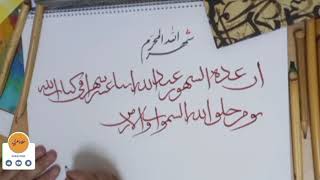 شهر الله المحرم
ان عدة الشهور عند الله اثنا عشر شهرا في كتاب الله
يوم خلق الله السموات والارض